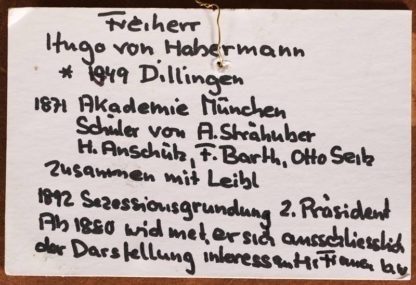 Freiherr
Hugo von Habermann
* 1849 Dillingen
1871 Akademie München
Schüler von A. Strähuber
H. Anschütz, F. Barth, Otto Seitz
Zusammen mit Leibl
1892 Sezessionsgründung 2. Präsident
Ab 1880 widmet er sich ausschliesslich
der Darstellung interessanter Frauen